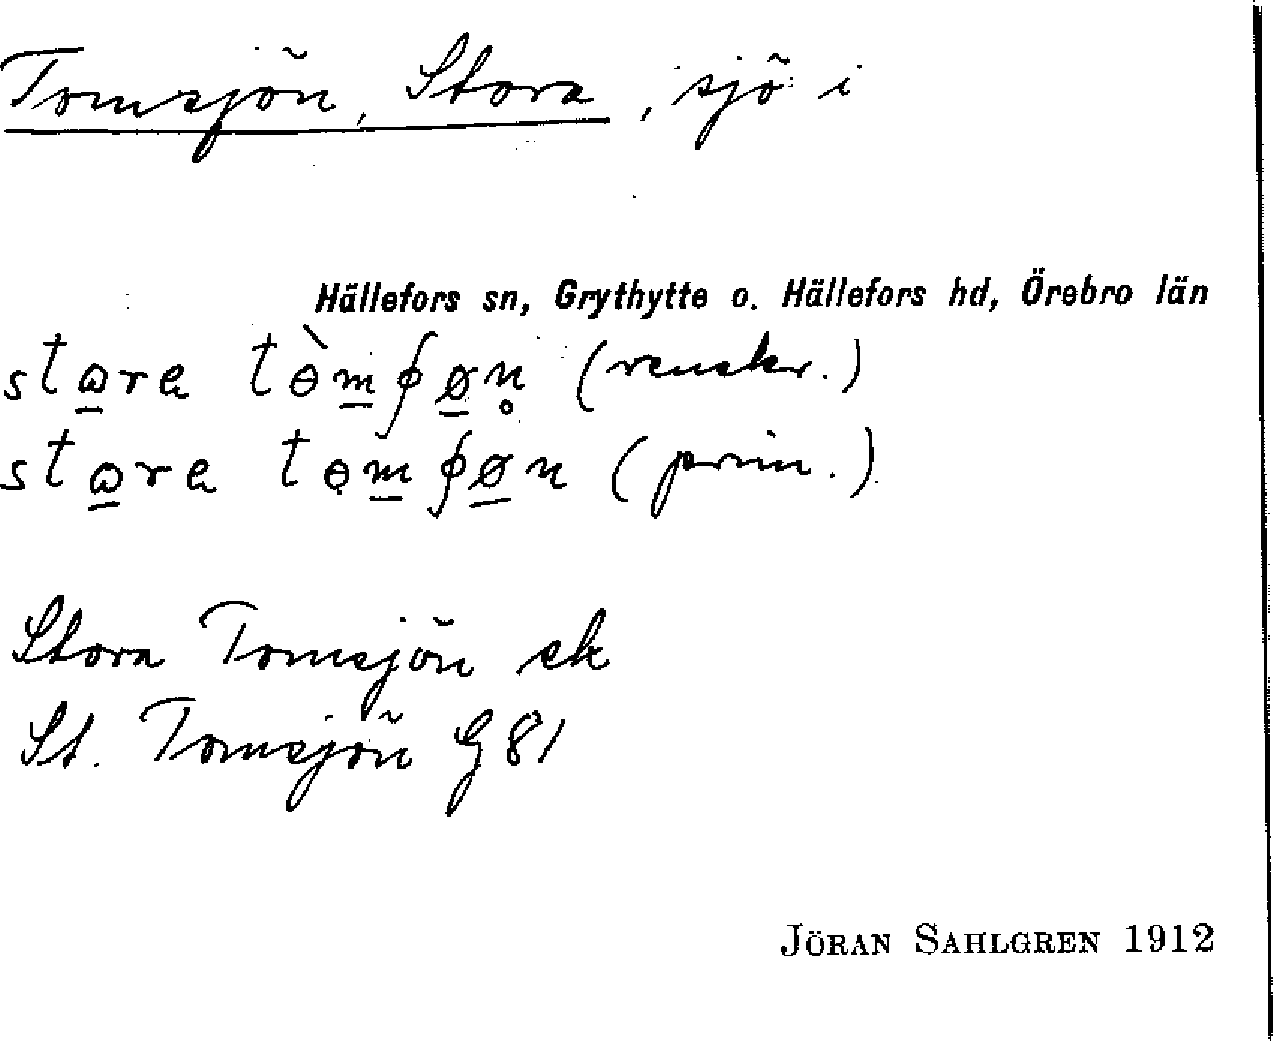 Tomsjön, Stora, sjö i
Hällefors sn, Grythytte o. Hällefors hd, Örebro län
(renskr.)
(prim.)
Stora Tomsjön ek
St. Tomsjön G 81
JÖRAN SAHLGREN 1912